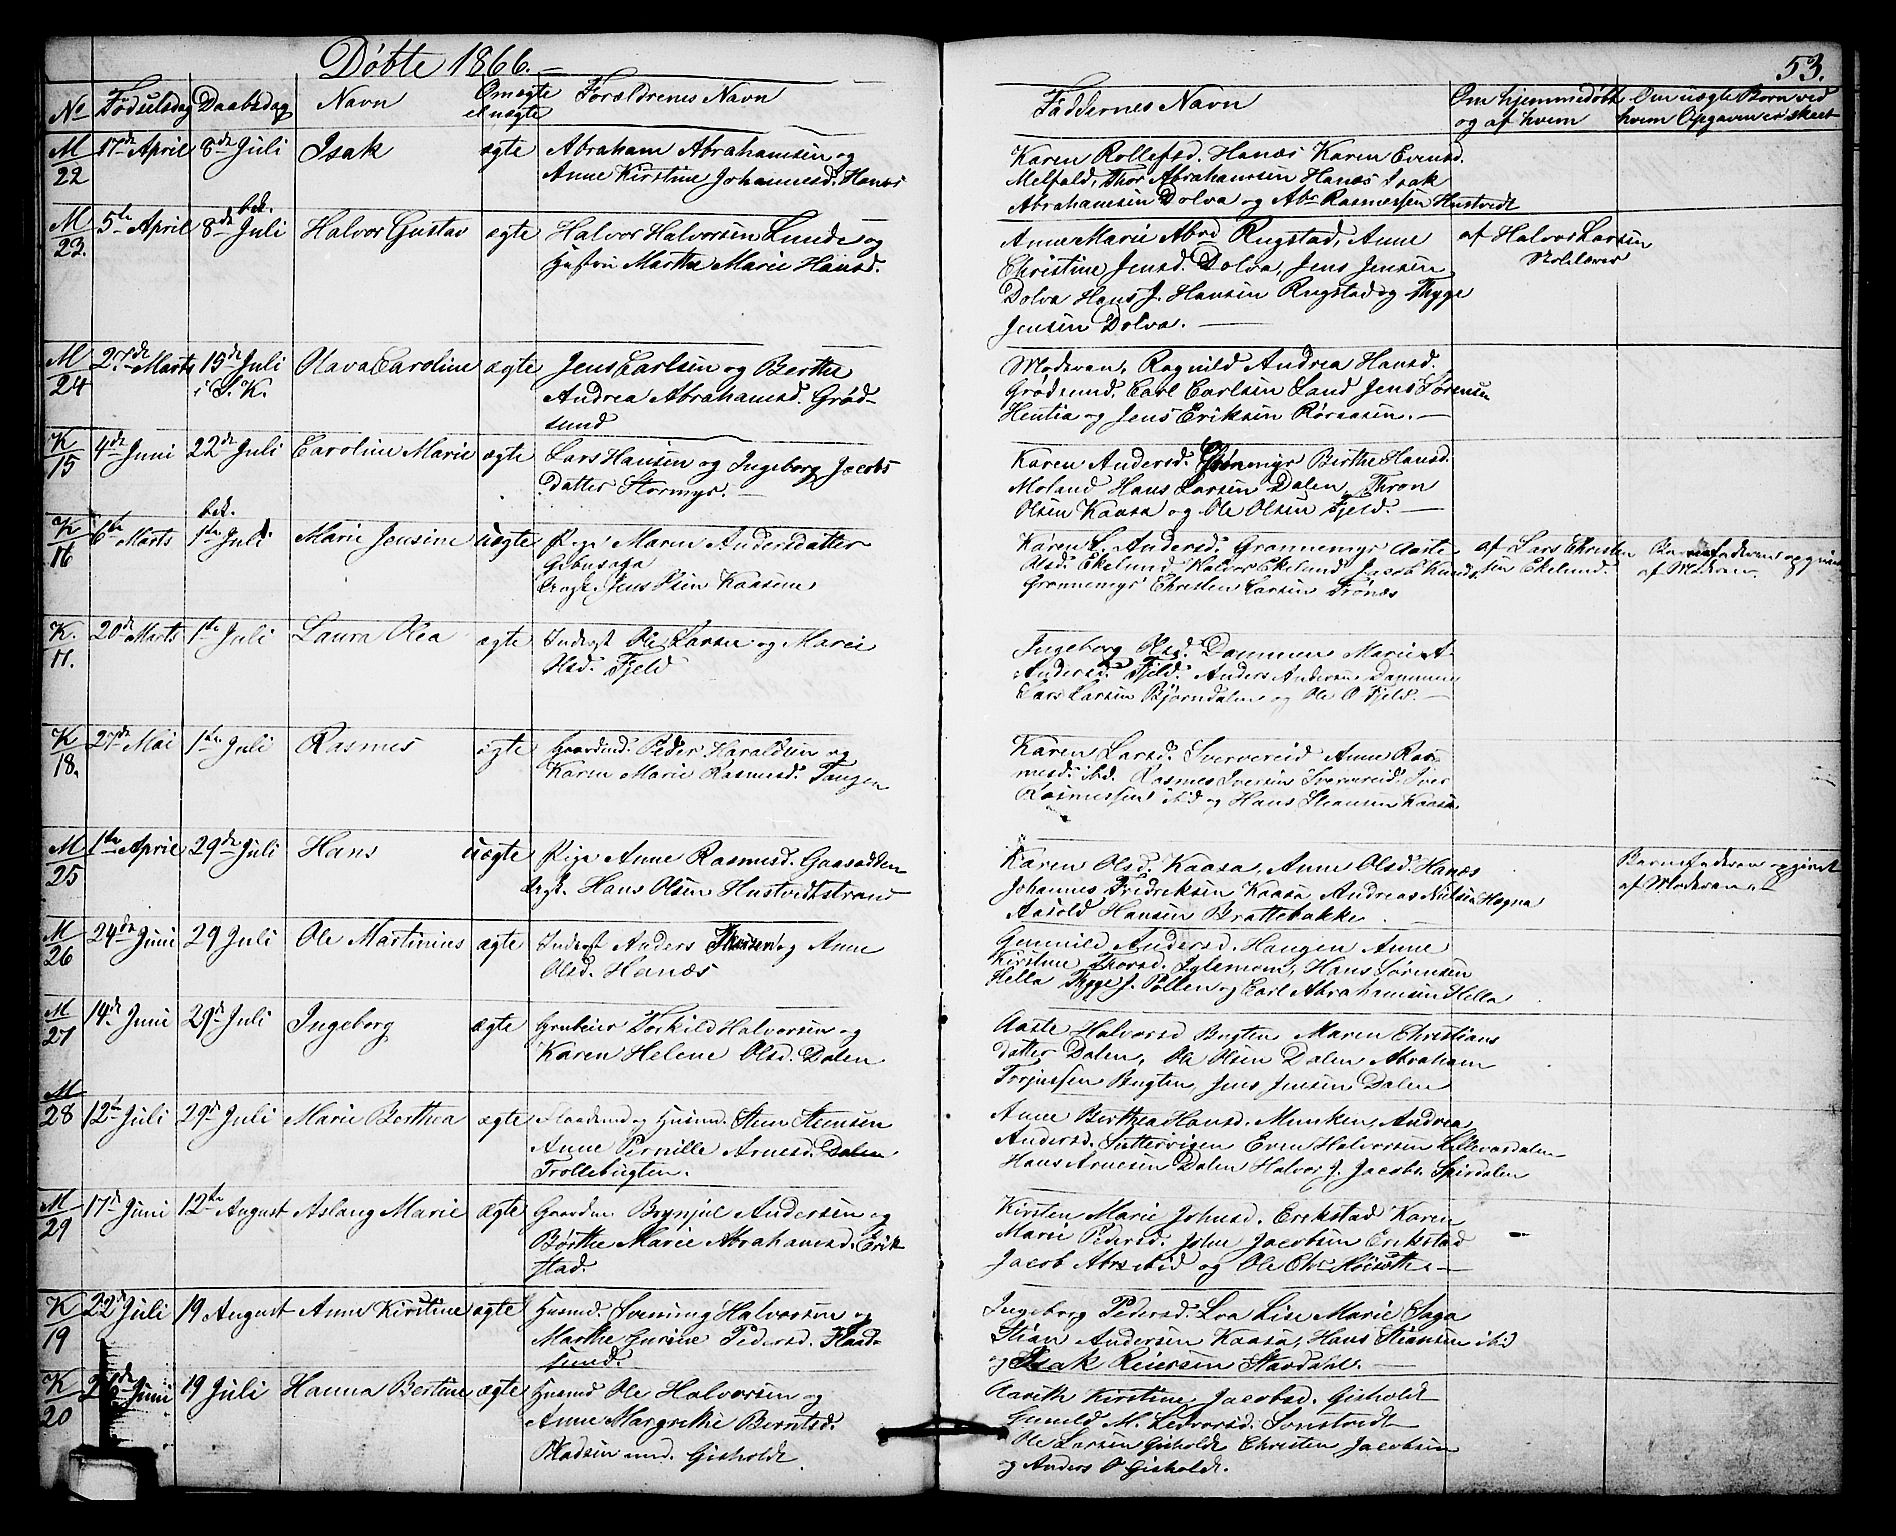 Døbte 1866. —
53.
No Fødselsdag Daabsdag Navn Om ægte el uægte Forældrenes Navn Faddernes Navn Om hjemmedøbt og af hvem Om uægte Børn ved hvem Opgaven er skeet
M 22 17de April 8de Juli Isak ægte Abraham Abrahamsen og
Anne Kirstine Johannesd. Hanæs
Karen Rollefsd. Hanæs Karen Evensd.
Melfald, Thor Abrahamsen Hanæs Isak
Abrahamsen Dolva og Abr Rasmussen Hustvedt
M 23. 5te April bek. 8de Juli Halvor Gustav ægte Halvor Halvorsen Lunde og
Hustru Marthe Marie Hansd.
Anne Marie Abrd Rugstad, Anne
Christine Jensd. Dolva, Jens Jensen
Dolva Hans J. Hansen Rugstad og Thyge
Jensen Dolva. —
af Halvor Larsen
M 24 27de Marts 15de Juli i S. K. Olava Caroline ægte Jens Carlsen og Berthe
Andrea Abrahamsd. Grød-
sund
Moderen, Ragnild Andrea Hansd.
Grødsund, Carl Carlsen Land Jens Sørensen
og Jens Eriksen Rørsasen. —
K 15 4de Juni 22de Juli Caroline Marie ægte Lars Hansen og Ingeborg Jacobs
datter Stormyr. —
Karen Andersd. Grønmyr Birthe Hansd.
Moland Hans Larsen Dalen, Thron
Olsen Kaasa og Ole Olsen Fjeld. —
K 16 6te Marts bek. 1te Juli Marie Jensine uægte Pige Maren Andersdatter
Jens Kaasene
Karen L. Andersd. Grønnemyr Aaste
Olsd. Ekelund Halvor Ekelund Jacob Knuds.
Grønnemyr Christen Larsen Trønæs
af Lars Christen
sen Ekelund.
Barnefaderen opgivet
af Moderen.
K. 17. 20de Marts 1te Juli Laura Olea ægte Inderst Ole Larsen og Marie
Olsd. Fjeld
Ingeborg Olsd. Dammen Marie A.
Andersd. Fjeld. Anders Andersen Dammen
Lars Larsen Bjørndalen og Ole O Fjeld. —
K 18. 27de Mai 1te Juli Rasmus ægte Gaardmd. Peder Haraldsen og
Karen Marie Rasmusd. Tangen
Karen Larsd. Sververeid Anne Ras-
musd. ibd. Rasmus Iversen Sververeid, Iver
Rasmussen ibid og Hans Steansen Kaasa
M 25 1te April 29de Juli Hans uægte Pige Anne Rasmusd. Gaasodden
Hans Olsen Hustvedtstrand
Karen Olsd. Kaasa, Anne Olsd. Hanæs
Johannes Fredriksen Kaasa, Andreas Nielsen Hogna
Hansen Brattebakke.
Barnefaderen opgivet
af Moderen.
M 26 24de Juni 29 Juli Ole Martinius ægte Inderst Anders og Anne
Olsd. Hanæs
Gunnild Andersd. Haugen Anne
Kirstine Thorsd. Hans Sørensen
Hella Thyge J. Pollen og Carl Abrahamsen Hella
M 27 14de Juni 29de Juli Ingeborg ægte Grubeier Torkild Halvorsen og
Karen Helene Olsd. Dalen
Aaste Halvorsd Bugten Maren Christians
datter Dalen, Ole Olsen Dalen Abraham
Torjussen Bugten, Jens Jensen Dalen
M 28 12te Juli 29de Juli Marie Berthea ægte og Husmd. Steen Steensen
Anne Pernille Arnesd. Dalen
Trollebugten.
Anne Berthea Hansd. Munken, Andrea
Andersd. Even Halvorsen Lillevardalen
Hans Arnesen Dalen Halvor J. Jacobs. Spirdalen
M 29 17de Juni 12te August Aslaug Marie ægte Gaardm. Brynjul Andersen og
Børthe Marie Abrahamsd. Erik
stad.
Kirsten Marie Johnsd. Erikstad Karen
Marie Pedersd. John Jacobsen Erikstad
Jacob Abrs ibid og Ole Chr —
K 19 22de Juli 19 August Anne Kirstine ægte Husmd. Svenung Halvorsen og
Marthe Gurine Pedersd. Flaad-
sund.
Ingeborg Pedersd. Eva Lise Marie Saga
Stian Andersen Kaasa, Hans Steansen ibid
og Isak Reiersen Stavdahl. —
K 20 26de Juni 19 Juli Hanna Bertine ægte Husmd Ole Halvorsen og
Anne Margrethe Berntsd.
Pladsen und. Gisholdt
Kirstine Jacobsd. Gisholdt
Gunild M. Sonstvedt
Ole Larsen Gisholdt Christen Jacobsen
og Anders O Gisholdt.